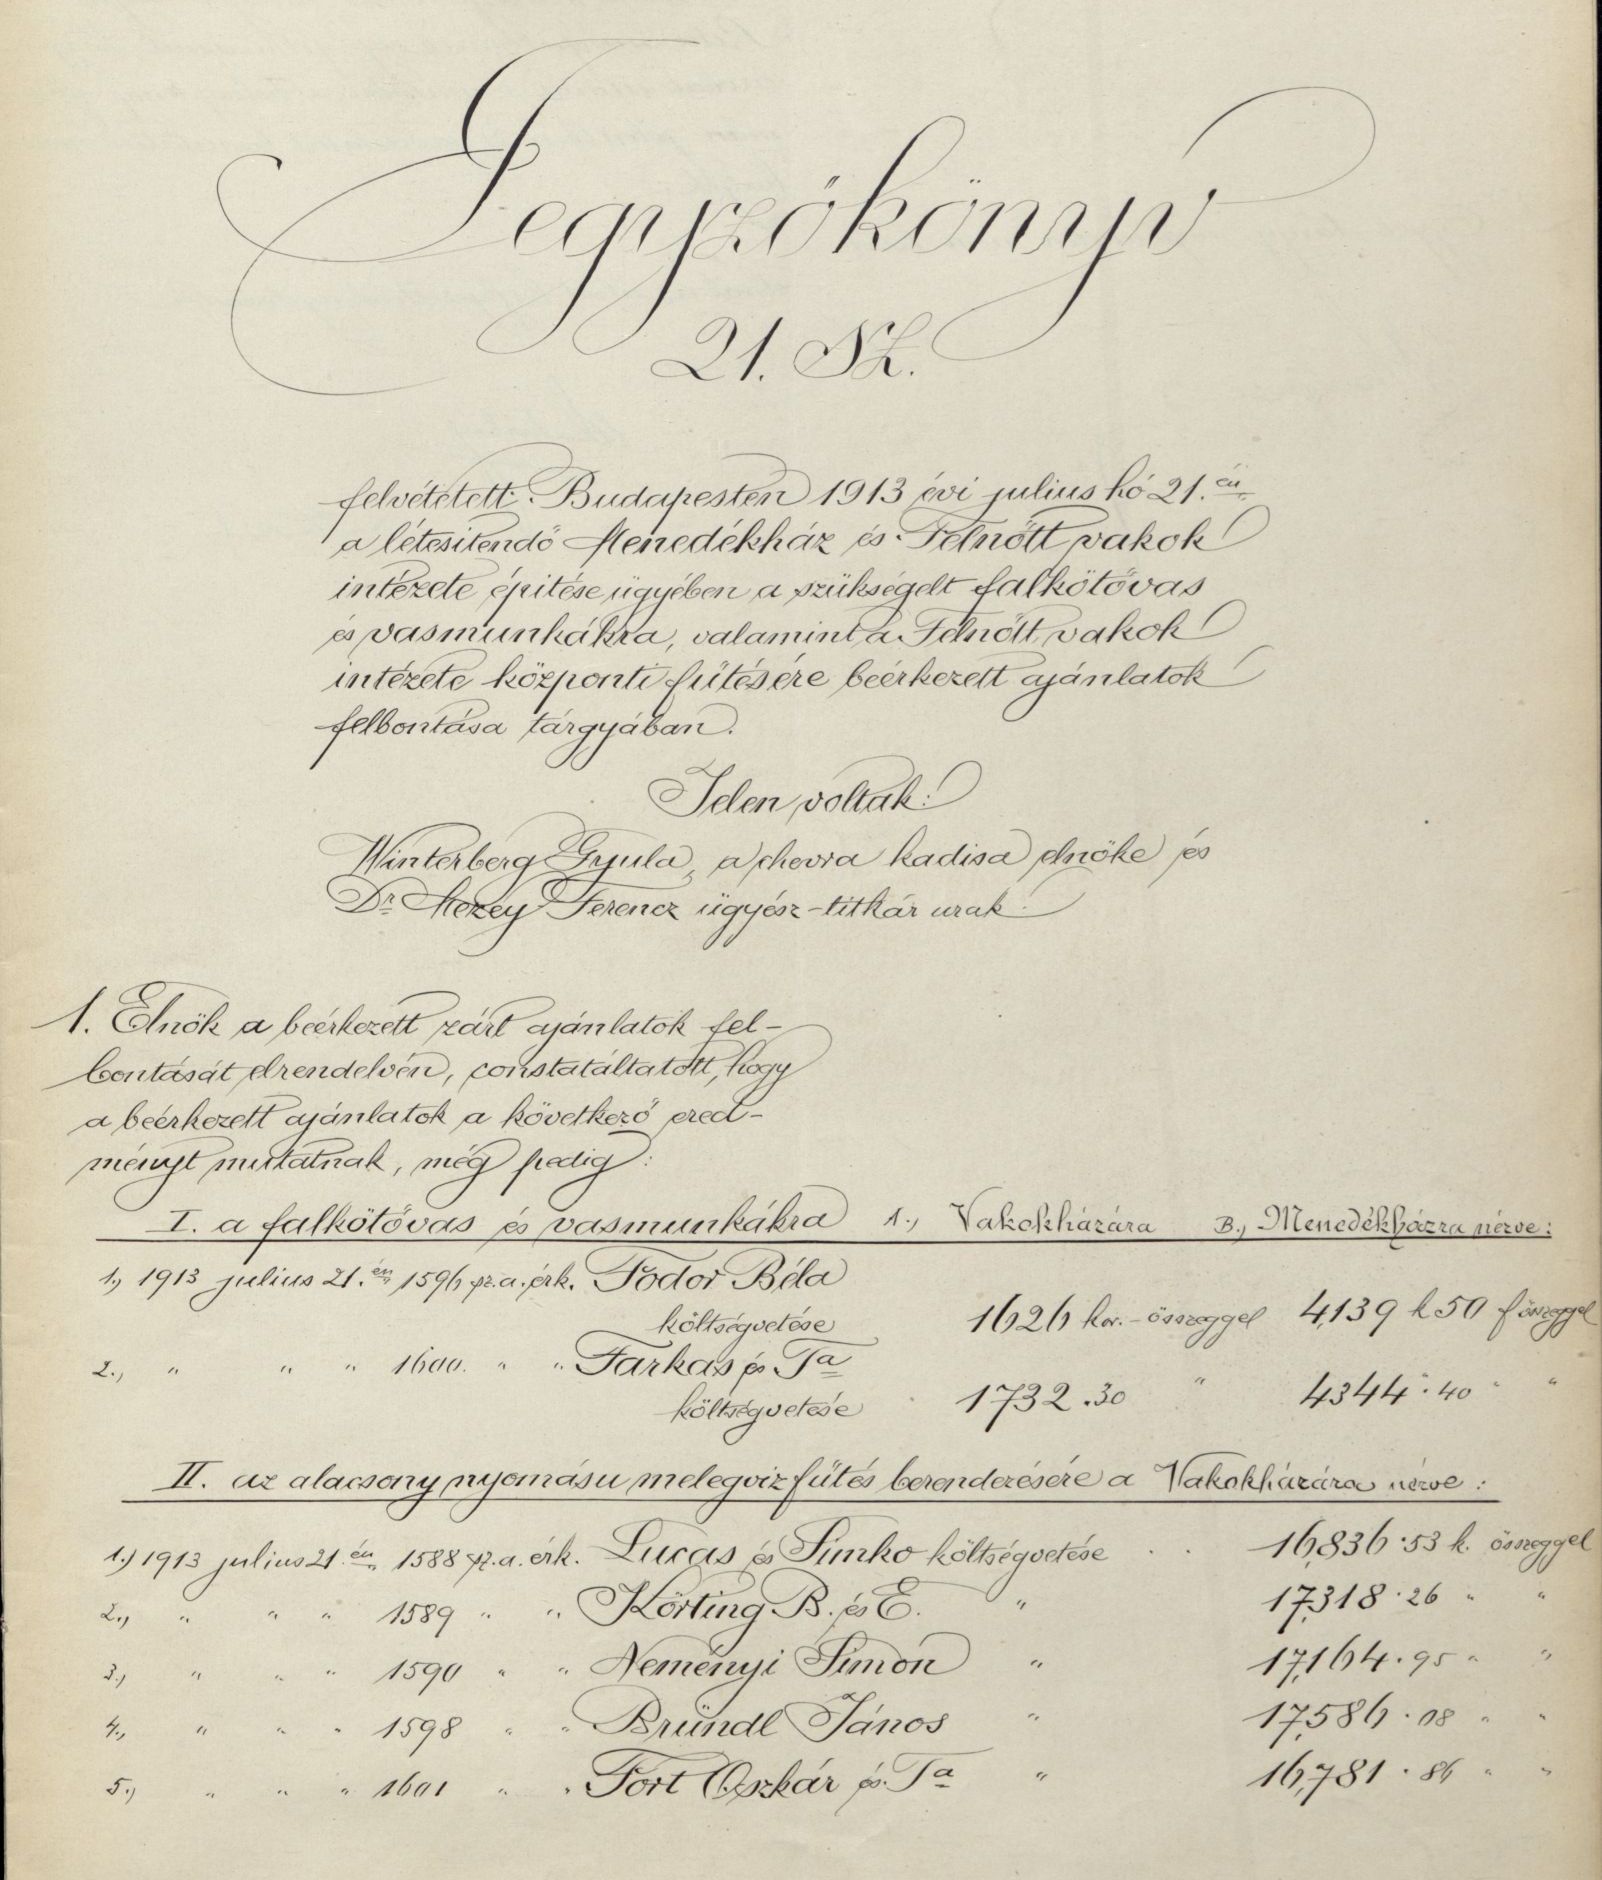 Jegyzőkönyv
21. SZ.
felvétetett Budapesten 1913 évi julius hó 21.én
a létesitendő Menedékház és Felnőtt vakok
intézete épitése ügyében a szükségelt falkötővas
és vasmunkákra, valamint a Felnőtt vakok
intézete központi fűtésére beérkezett ajánlatok
felbontása tárgyában.
Jelen voltak:
Winterberg Gyula, a chevra kadisa elnöke és
Dr. Mezey Ferencz ügyész-titkár urak.
1. Elnök a beérkezett zárt ajánlatok fel-
bontását elrendelvén, constatáltatott, hogy
a beérkezett ajánlatok a következő ered-
ményt mutatnak, még pedig:
I. a falkötővas és vasmunkákra 1., Vakokházára B., Menedékházra nézve:
1., 1913 julius 21.én 1596 sz. a. érk. Fodor Béla
költségvetése 1626 kor.- összeggel 4,139 k 50 f összeggel
2., " " " 1600. " " Farkas és Ta
költségvetése 1732.30 " 4344.40 " "
II. az alacsony nyomásu melegviz fűtés berendezésére a Vakokházára nézve:
1.) 1913 julius 21.én 1588 sz. a. érk. Lucas és Simko költségvetése . . 16,836.53 k. összeggel
2., " " " 1589 " " Körting B. és E. " 17,318.26 " "
3., " " " 1590 " " Neményi Simon " 17,164.95 " "
4., " " " 1598 " " Bründl János " 17,586.08 " "
5., " " " 1601 " " Fort Oszkár és Ta " 16,781.86 " "